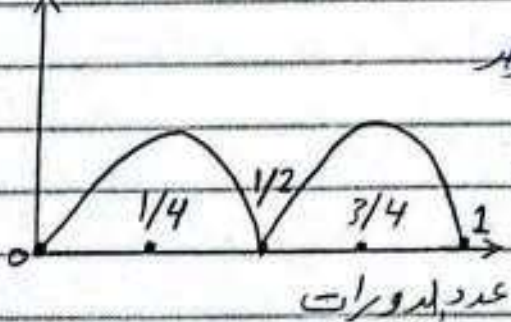 1/2
1/4
3/4
1
0
عدد الدورات